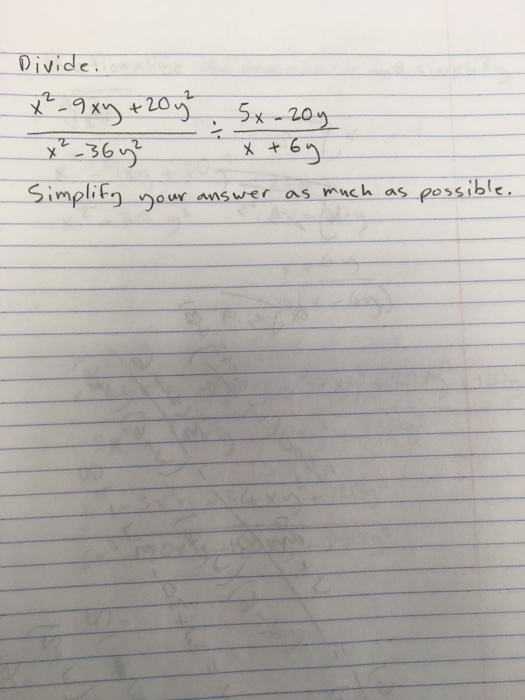 Divide.
x²-9xy+20y² / x²-36y² ÷ 5x-20y / x+6y
Simplify your answer as much as possible.